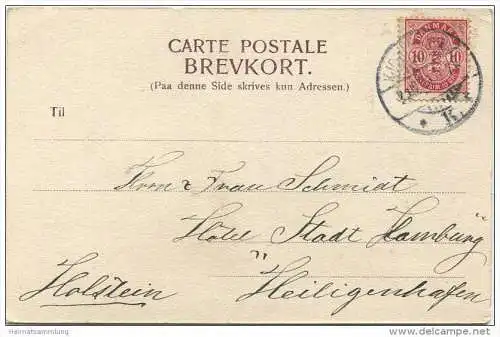 CARTE POSTALE
BREVKORT.
(Paa denne Side skrives kun Adressen.)
DANMARK
10 10
K
Til
Herrn & Frau Schmidt
Hôtel "Stadt Hamburg"
Holstein Heiligenhafen
Heimatsammlung
delcampe.net